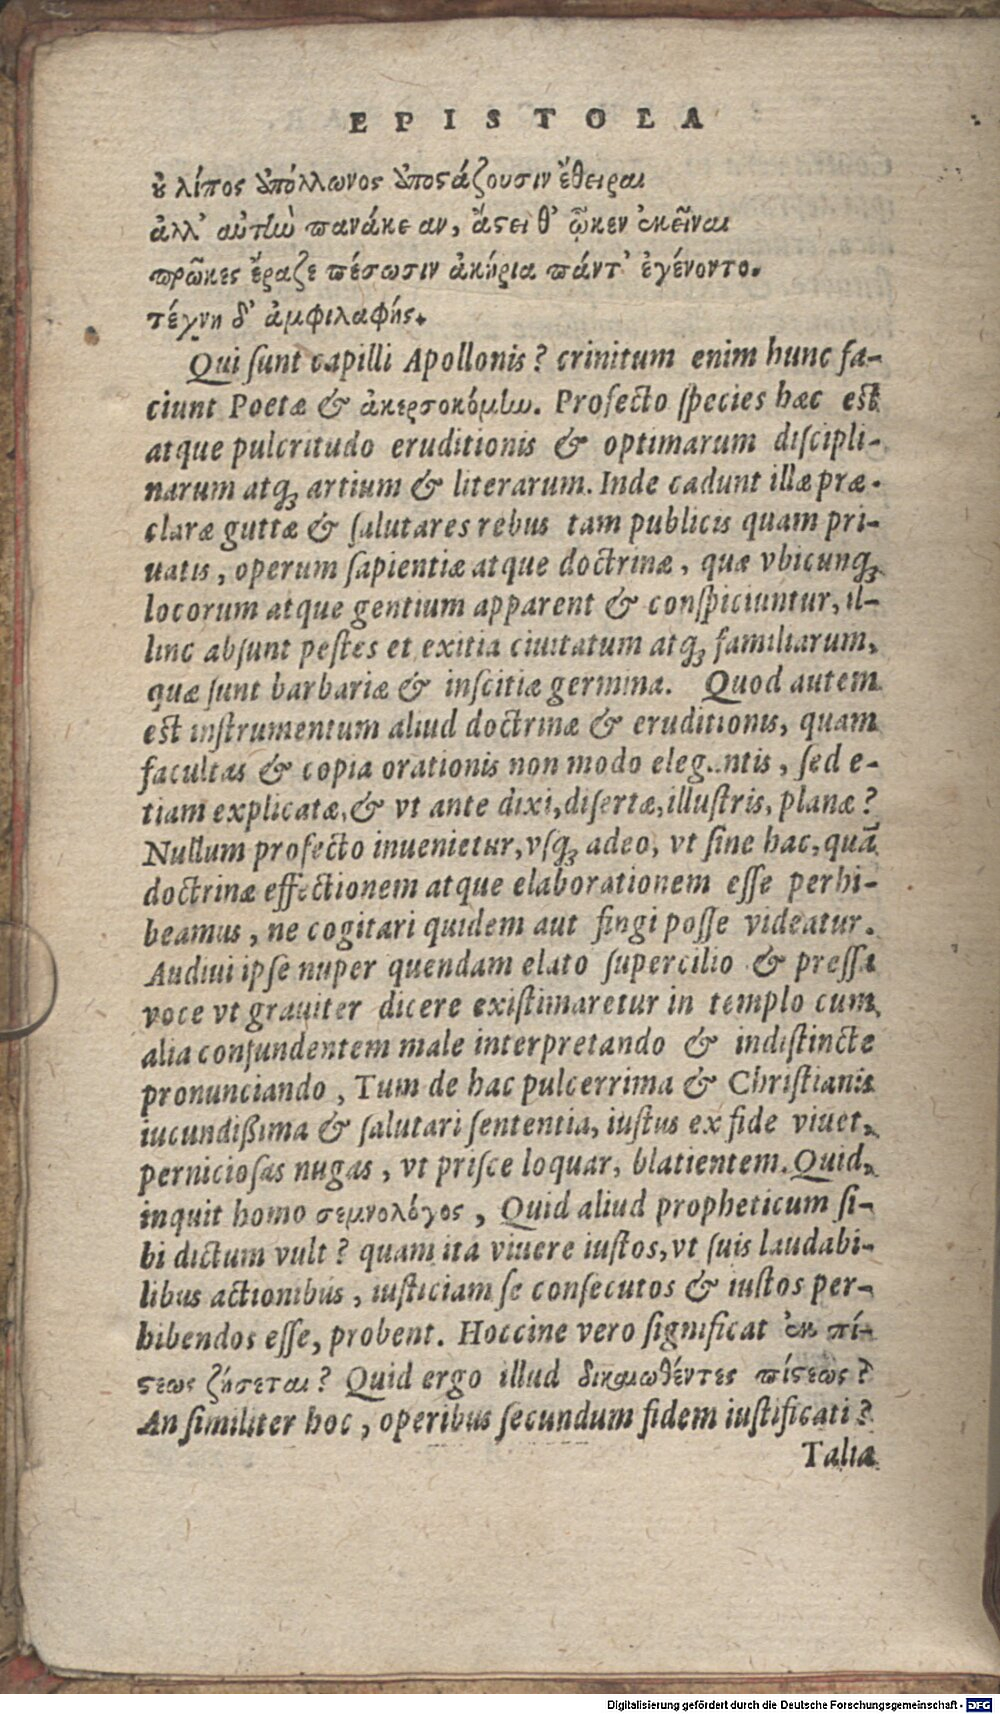 EPISTOLA
οὐ λίπος ἀπόλλωνος ἀποστάζουσιν ἔθειραι
ἀλλ' αὐτὴν πανάκειαν, ἄστει θ' ᾧκεν ἐκεῖναι
πρῶκες ἔραζε πέσωσιν ἀκήρια πάντ' ἐγένοντο.
τέχνη δ' ἀμφιλαφής.
Qui sunt capilli Apollonis? crinitum enim hunc fa-
ciunt Poetæ & ἀκερσοκόμην. Profecto species hæc est
atque pulcritudo eruditionis & optimarum discipli-
narum atq; artium & literarum. Inde cadunt illæ præ-
claræ guttæ & salutares rebus tam publicis quam pri-
uatis, operum sapientiæ atque doctrinæ, quæ vbicunq;
locorum atque gentium apparent & conspiciuntur, il-
linc absunt pestes et exitia ciuitatum atq; familiarum,
quæ sunt barbariæ & inscitiæ germina. Quod autem
est instrumentum aliud doctrinæ & eruditionis, quam
facultas & copia orationis non modo elegantis, sed e-
tiam explicatæ, & vt ante dixi, disertæ, illustris, planæ?
Nullum profecto inuenietur, vsq; adeo, vt sine hac, quã
doctrinæ effectionem atque elaborationem esse perhi-
beamus, ne cogitari quidem aut fingi posse videatur.
Audiui ipse nuper quendam elato supercilio & pressa
voce vt grauiter dicere existimaretur in templo cum
alia confundentem male interpretando & indistincte
pronunciando, Tum de hac pulcerrima & Christianis
iucundißima & salutari sententia, iustus ex fide viuet,
perniciosas nugas, vt prisce loquar, blatientem. Quid,
inquit homo σεμνολόγος, Quid aliud propheticum si-
bi dictum vult? quam ita viuere iustos, vt suis laudabi-
libus actionibus, iusticiam se consecutos & iustos per-
hibendos esse, probent. Hoccine vero significat ἐκ πί-
στεως ζήσεται? Quid ergo illud δικαιωθέντες πίστεως?
An similiter hoc, operibus secundum fidem iustificati?
Talia
Digitalisierung gefördert durch die Deutsche Forschungsgemeinschaft - DFG